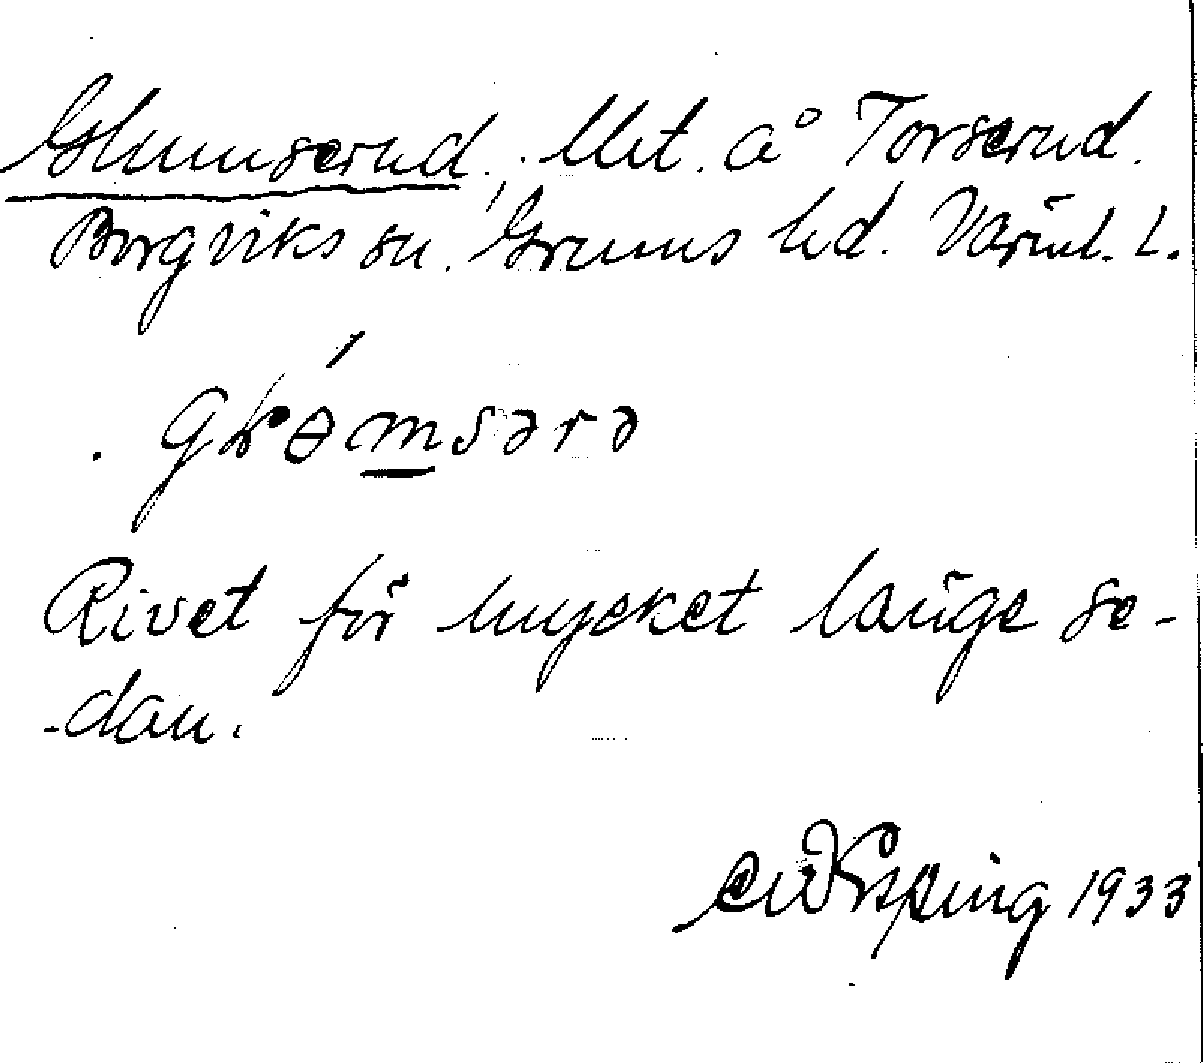 Glumserud, Utt. å Torserud.
Borgviks sn. Grums hd. Värml. L.
. gɫɵ́msərə
Rivet för mycket länge se-
-dan.
1933